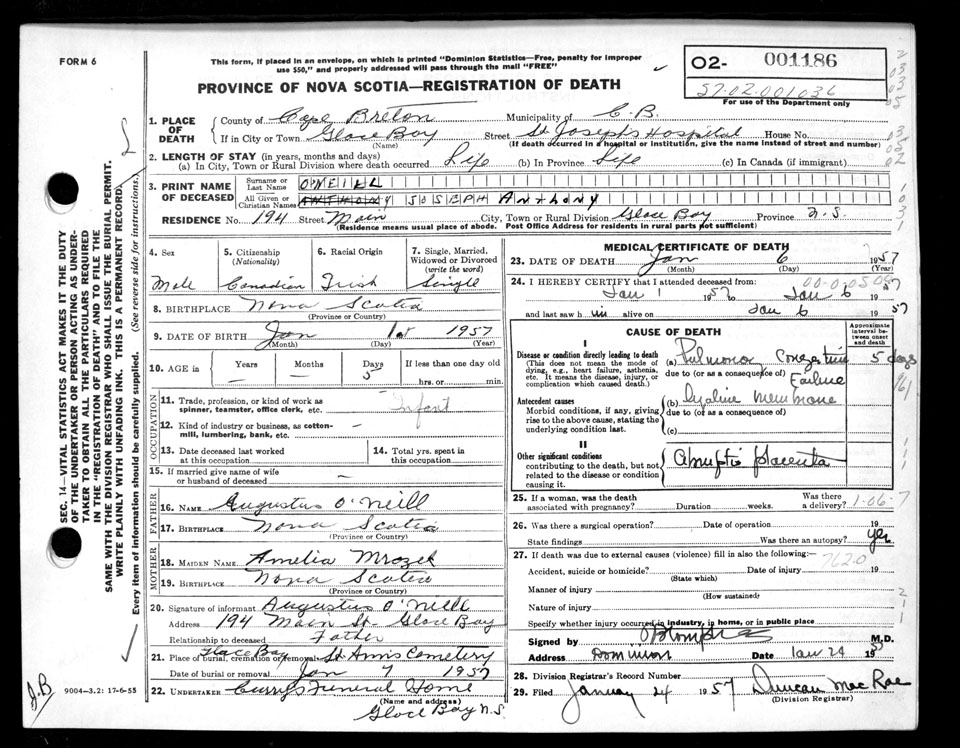 FORM 6
This form, if placed in an envelope, on which is printed "Dominion Statistics—Free, penalty for improper
use $50," and properly addressed will pass through the mail "FREE"
PROVINCE OF NOVA SCOTIA—REGISTRATION OF DEATH
O2- 001186
57-02-001036
For use of the Department only
SEC. 14—VITAL STATISTICS ACT MAKES IT THE DUTY
OF THE UNDERTAKER OR PERSON ACTING AS UNDER-
TAKER TO OBTAIN ALL THE PARTICULARS REQUIRED
IN THE "REGISTRATION OF DEATH" AND TO FILE THE
SAME WITH THE DIVISION REGISTRAR WHO SHALL ISSUE THE BURIAL PERMIT.
WRITE PLAINLY WITH UNFADING INK. THIS IS A PERMANENT RECORD.
Every item of information should be carefully supplied. (See reverse side for instructions.)
1. PLACE OF DEATH
County of Cape Breton Municipality of C.B.
If in City or Town Glace Bay Street St Joseph's Hospital House No.
(Name) (If death occurred in a hospital or institution, give the name instead of street and number)
2. LENGTH OF STAY (in years, months and days)
(a) In City, Town or Rural Division where death occurred Life (b) In Province Life (c) In Canada (if immigrant)
3. PRINT NAME OF DECEASED
Surname or Last Name O'NEILL
All Given or Christian Names ANTHONY JOSEPH Anthony
RESIDENCE No. 194 Street Main City, Town or Rural Division Glace Bay Province N.S.
(Residence means usual place of abode. Post Office Address for residents in rural parts not sufficient)
4. Sex
Male
5. Citizenship
(Nationality)
Canadian
6. Racial Origin
Irish
7. Single, Married,
Widowed or Divorced
(write the word)
Single
8. BIRTHPLACE Nova Scotia
(Province or Country)
9. DATE OF BIRTH Jan 1st 1957
(Month) (Day) (Year)
10. AGE in
Years — Months — Days 5
If less than one day old
hrs. or min.
OCCUPATION
11. Trade, profession, or kind of work as
spinner, teamster, office clerk, etc. Infant
12. Kind of industry or business, as cotton-
mill, lumbering, bank, etc. —
13. Date deceased last worked
at this occupation
14. Total yrs. spent in
this occupation
15. If married give name of wife
or husband of deceased —
FATHER
16. NAME Augustus O'Neill
17. BIRTHPLACE Nova Scotia
(Province or Country)
MOTHER
18. MAIDEN NAME Amelia Mrozek
19. BIRTHPLACE Nova Scotia
(Province or Country)
20. Signature of informant Augustus O'Neill
Address 194 Main St. Glace Bay
Relationship to deceased Father
21. Place of burial, cremation or removal Glace Bay St Anns Cemetery
Date of burial or removal Jan 7 1957
22. UNDERTAKER Curry's Funeral Home
(Name and address)
Glace Bay N.S.
9004—3.2: 17-6-55
J.B
MEDICAL CERTIFICATE OF DEATH
23. DATE OF DEATH Jan 6 1957
(Month) (Day) (Year)
24. I HEREBY CERTIFY that I attended deceased from:
Jan 1 1957 to Jan 6 1957
and last saw him alive on Jan 6 1957
CAUSE OF DEATH
Approximate
interval be-
tween onset
and death
I
Disease or condition directly leading to death
(This does not mean the mode of
dying, e.g., heart failure, asthenia,
etc. It means the disease, injury, or
complication which caused death.)
(a) Pulmonary Congestion 5 days
due to (or as a consequence of) Failure
Antecedent causes
Morbid conditions, if any, giving
rise to the above cause, stating the
underlying condition last.
(b) Hyaline Membrane
due to (or as a consequence of)
(c)
II
Other significant conditions
contributing to the death, but not
related to the disease or condition
causing it.
Abruptio placenta
25. If a woman, was the death
associated with pregnancy? Duration weeks. Was there
a delivery?
1-06-7
26. Was there a surgical operation? Date of operation 19
State findings Was there an autopsy? Yes
27. If death was due to external causes (violence) fill in also the following:—
7620
Accident, suicide or homicide? Date of injury 19
(State which)
Manner of injury
(How sustained)
Nature of injury
Specify whether injury occurred in industry, in home, or in public place
Signed by M.D.
Address Dominion Date Jan 24 1957
28. Division Registrar's Record Number
29. Filed January 24 1957 Duncan MacRae
(Division Registrar)